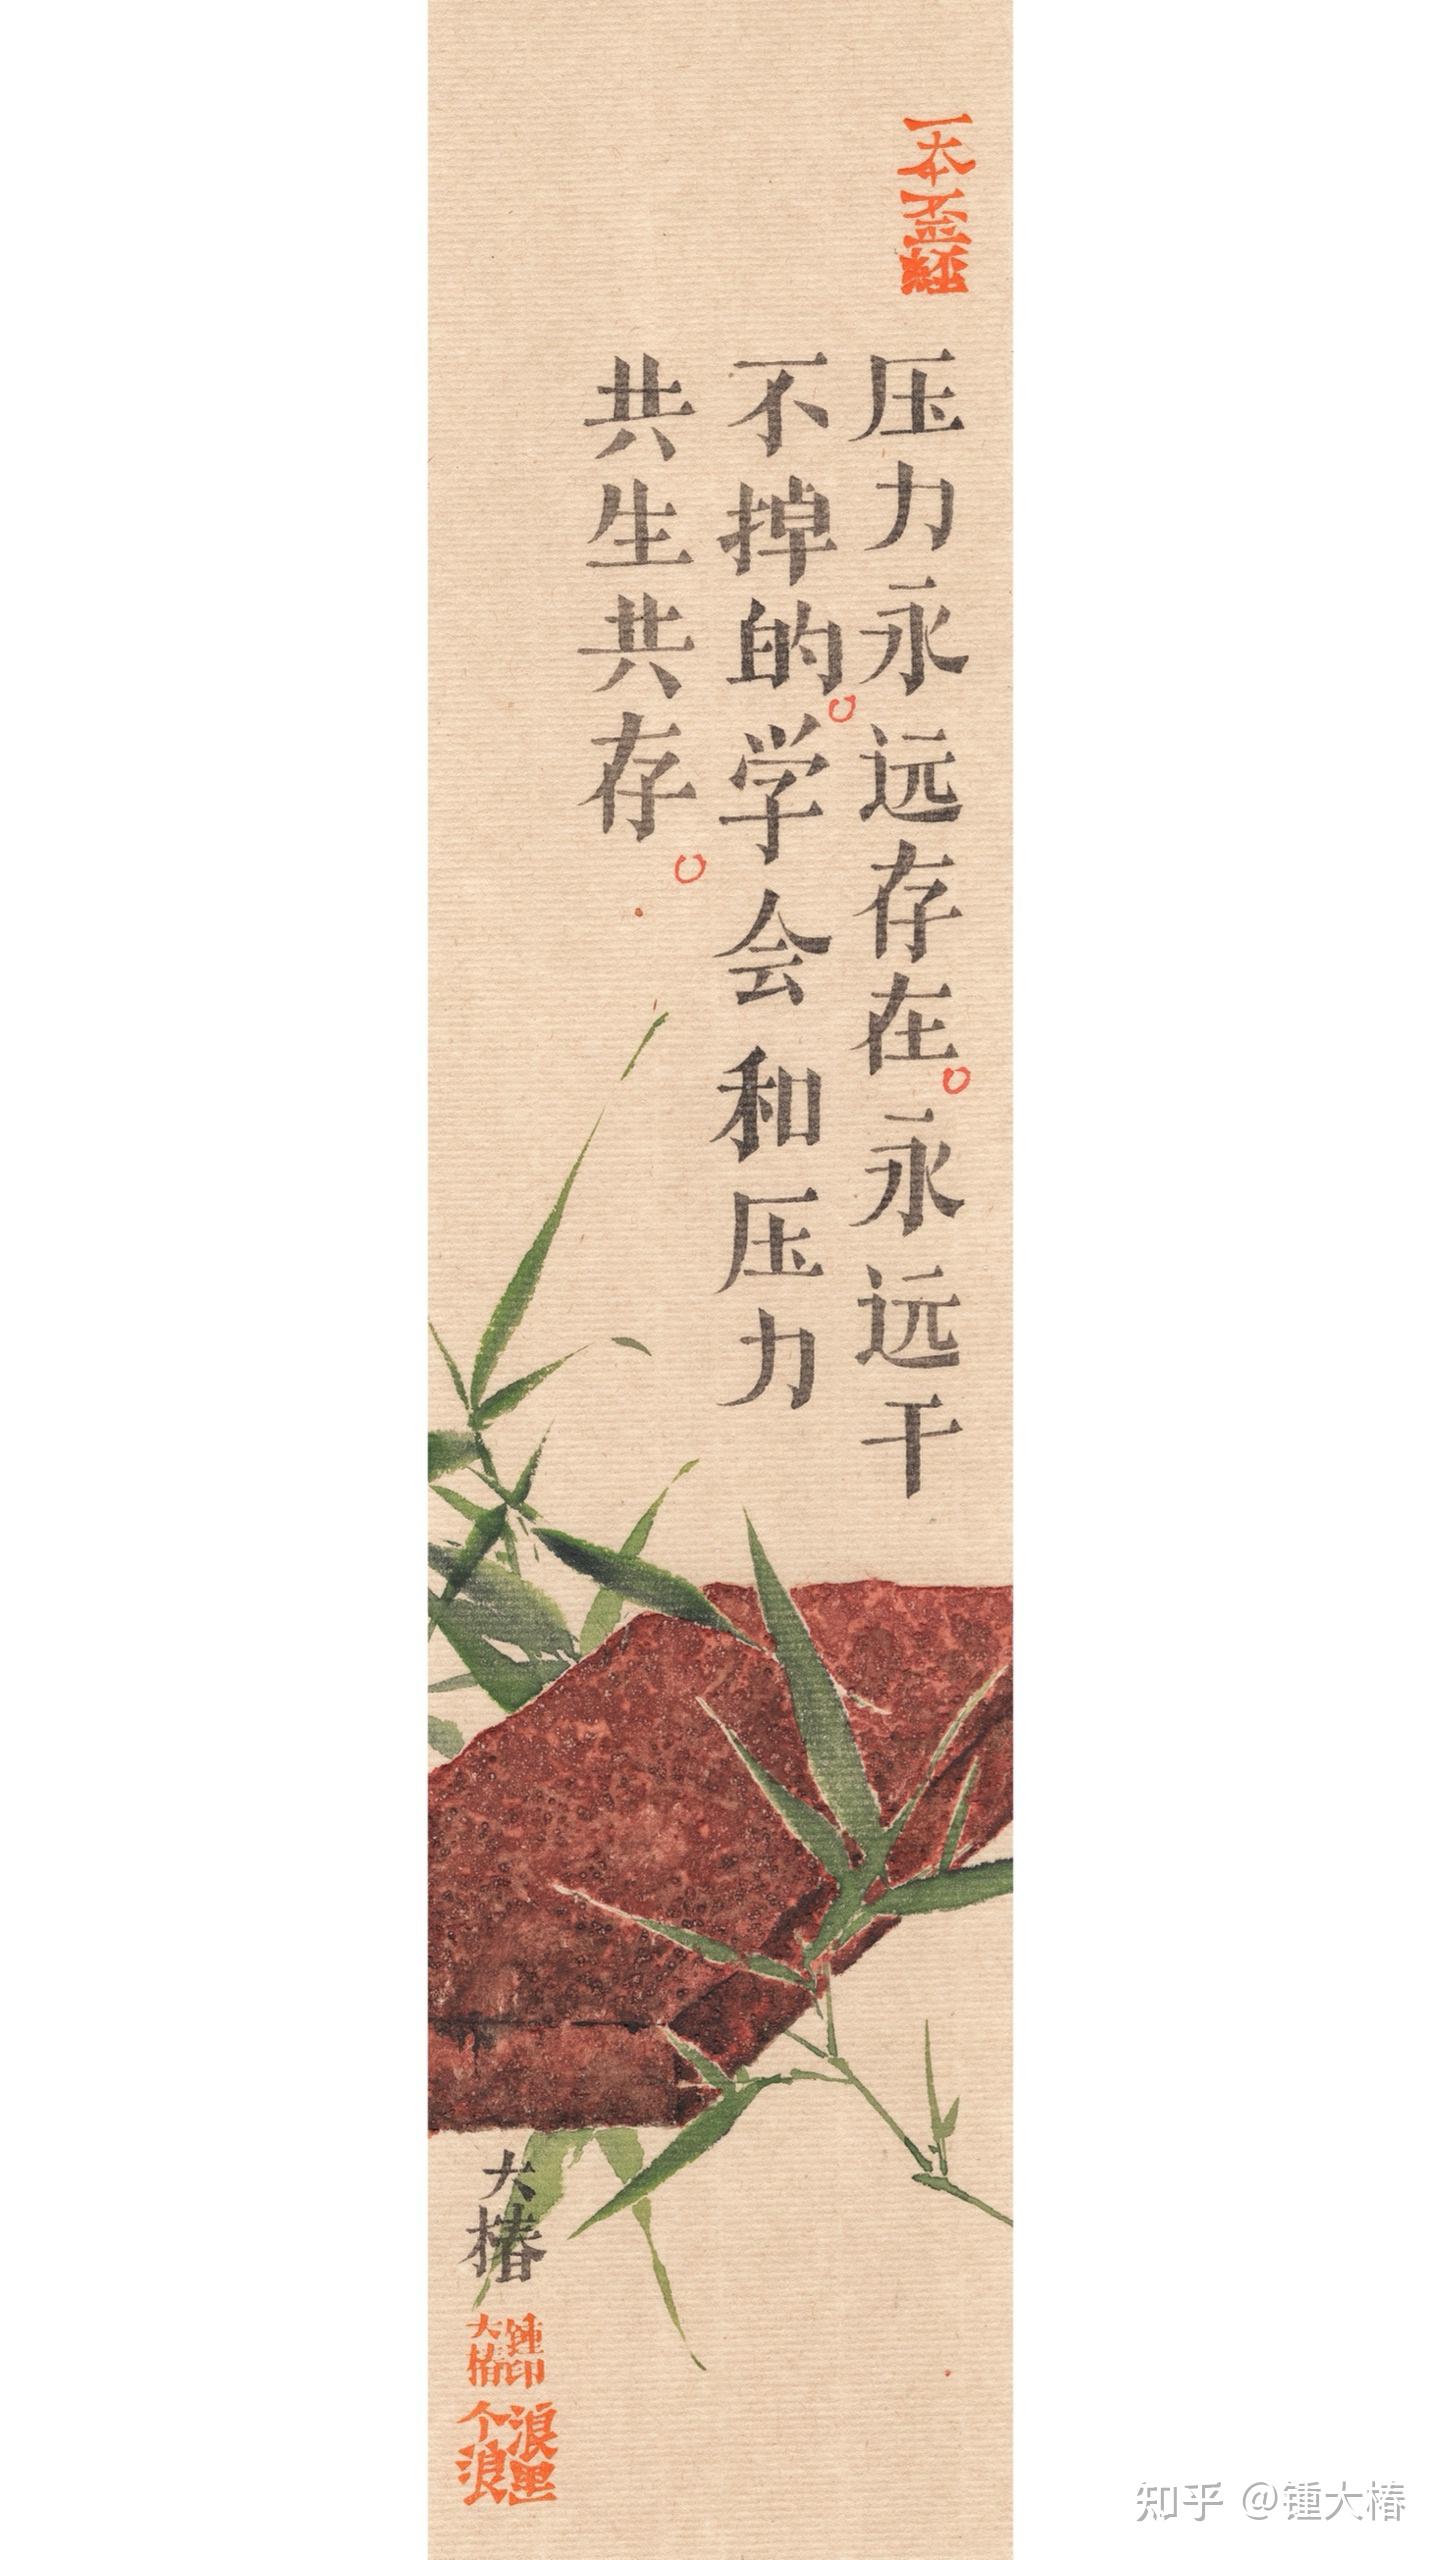 一本歪經
压力永远存在。永远干
不掉的。学会和压力
共生共存。
大椿
鍾印
大椿
浪里
个浪
知乎 @锺大椿